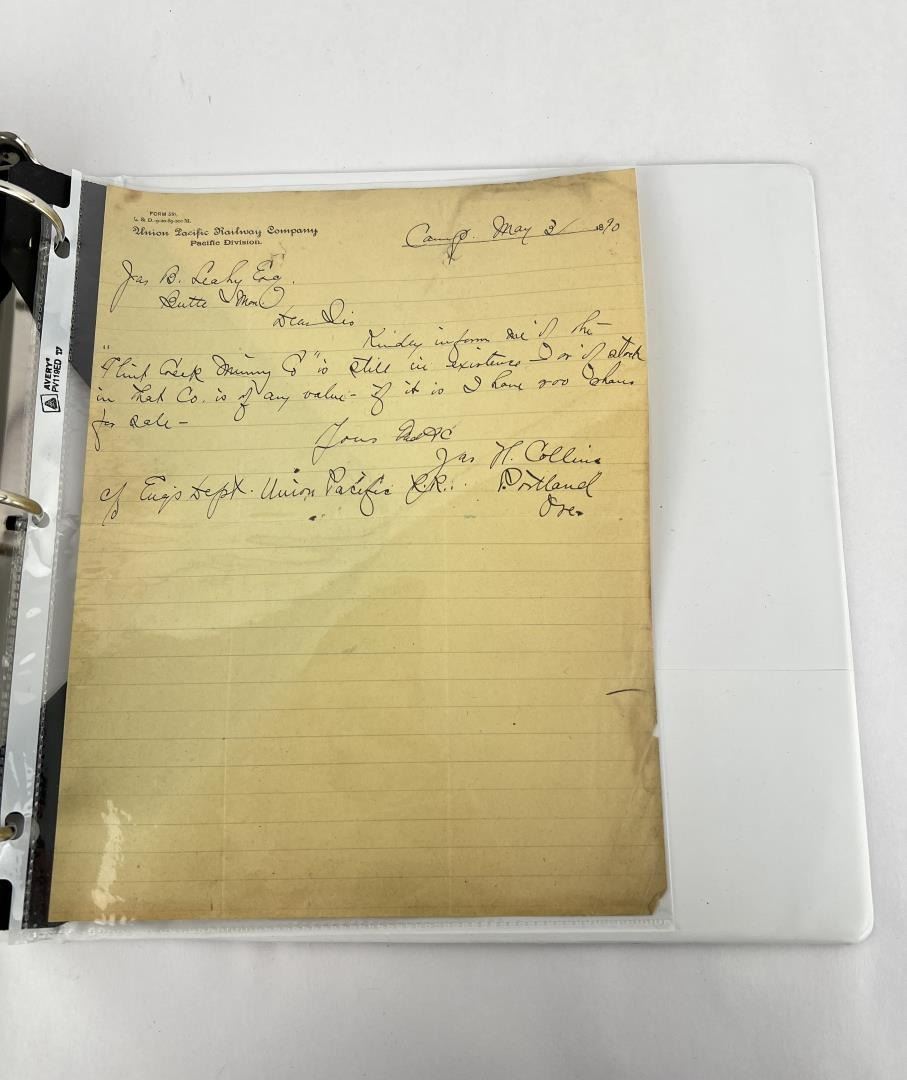 FORM 591.
L. & D.
Union Pacific Railway Company
Pacific Division.
Camp. May 3/ 1890
Jas B. Leahy Esq.
Butte Mon
Dear Sir
Kindly inform me if the
"Flint Creek Mining Co" is still in existence & or if stock
in that Co. is of any value - If it is I have 500 shares
for sale -
Yours
Jas H. Collins
c/o Eng's Dept. Union Pacific R.R.. Portland
Ore.
AVERY®
PV119ED